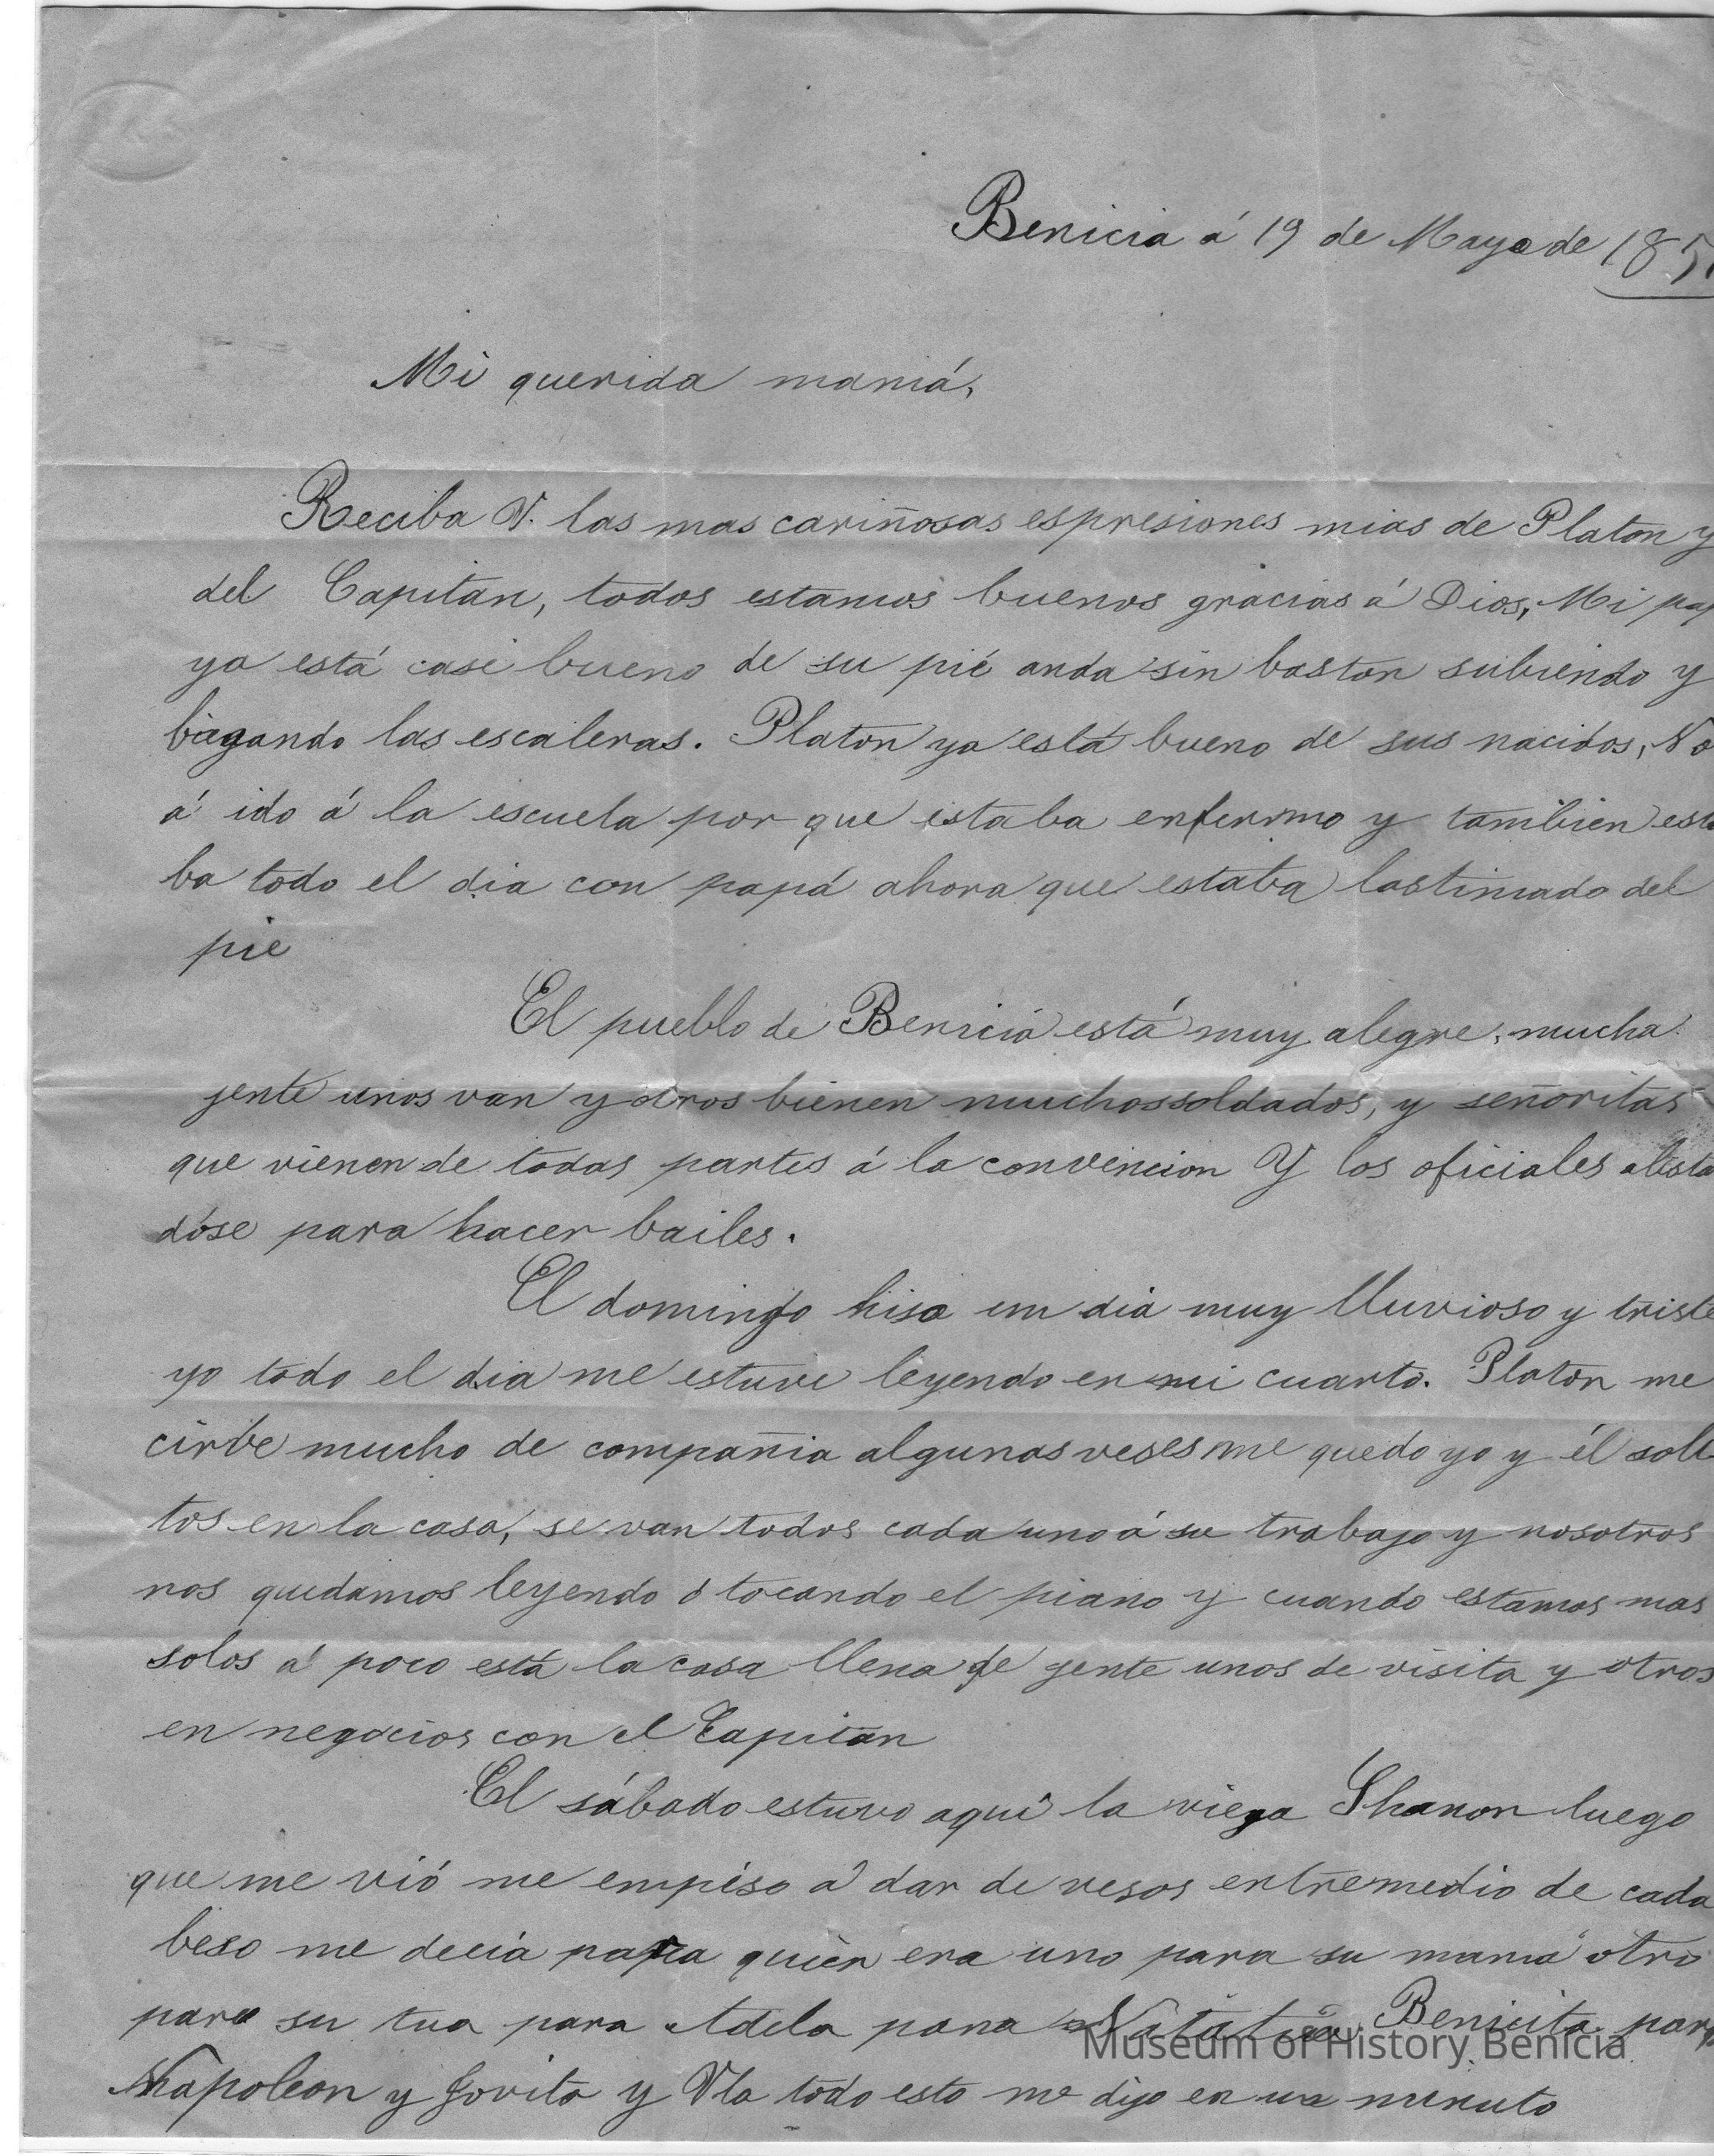 Benicia á 19 de Mayo de 185
Mi querida mamá,
Reciba V. las mas cariñosas espresiones mias de Platon y
del Capitan, todos estamos buenos gracias á Dios, Mi pap
ya está casi bueno de su pié anda sin baston subiendo y
bagando las escaleras. Platon ya está bueno de sus nacidos, No
á ido á la escuela por que estaba enfermo y tambien esta
ba todo el dia con papá ahora que estaba lastimado del
pie
El pueblo de Benicia está muy alegre, mucha
jente unos van y otros bienen muchos soldados, y señoritas
que vienen de todas partes á la convencion Y los oficiales alista
dose para hacer bailes.
El domingo hiso un dia muy lluvioso y triste
yo todo el dia me estuve leyendo en mi cuarto. Platon me
cirbe mucho de compañia algunas veses me quedo yo y él soli
tos en la casa, se van todos cada uno á su trabajo y nosotros
nos quedamos leyendo ó tocando el piano y cuando estamos mas
solos á poco está la casa llena de jente unos de visita y otros
en negocios con el Capitan
El sábado estuvo aqui la viega Shanon luego
que me vió me empiso á dar de vesos entremedio de cada
beso me decia para quien era uno para su mamá otro
para su tua para Adela para Benicita para
Napoleon y Jovita y Ula todo esto me dijo en un minuto
Museum of History Benicia